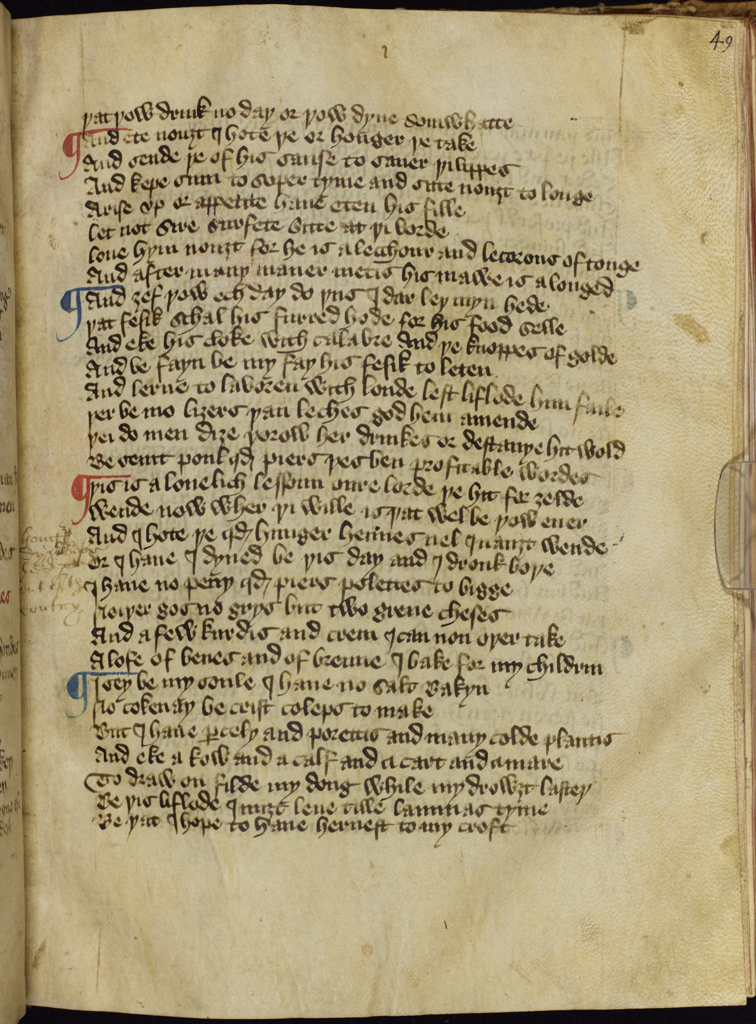 49
þat þow drink no day or þow dyne somwhatte
And ete nouȝt I hote þe or honger þe take
And sende þe of his sause to sauer þi lippes
And kepe sum to soper tyme and sitte nouȝt to longe
Arise vp or appetite haue eten his fille
Let not sire surfete sitte at þi borde
loue hym nouȝt for he is a lecchour and lecorous of tonge
And after many maner metis his mawe is a longed
And ȝef þow ech day do þus I dar ley myn hede
þat fesik schal his furred hode for his food selle
And eke his cloke with calabre And þe knoppes of golde
And be fayn be my fay his fesik to leten
And lerne to laboren with londe lest liflode him faile
þer be mo liȝers þan leches god hem amende
þei do men diȝe þorow her drinkes or destanye hit wold
Be seint poul qd piers þes ben profitable wordes
þis is a louelich lessoun oure lorde þe hit for ȝelde
Wende now wher þi wille is þat wel be þow euer
And I hote þe qd hunger hennes nel I nauȝt wende
Or I haue I dyned be þis day and I dronk boþe
I haue no peny qd piers poletes to bigge
Noiþer gos no grys but two grene cheses
And a few kurdis and crem I can non oþer take
A lofe of benes and of brenne I bake for my childrin
I sey be my soule I haue no salt bakyn
No cokenay be crist coleps to make
But I haue percely and porettis and many colde plantis
And eke a kow and a calf and a cart and a mare
To draw on filde my dong while my drowȝt lasteþ
Be þis liflode I miȝt leue tille lammas tyme
Be þat I hope to haue heruest to my croft